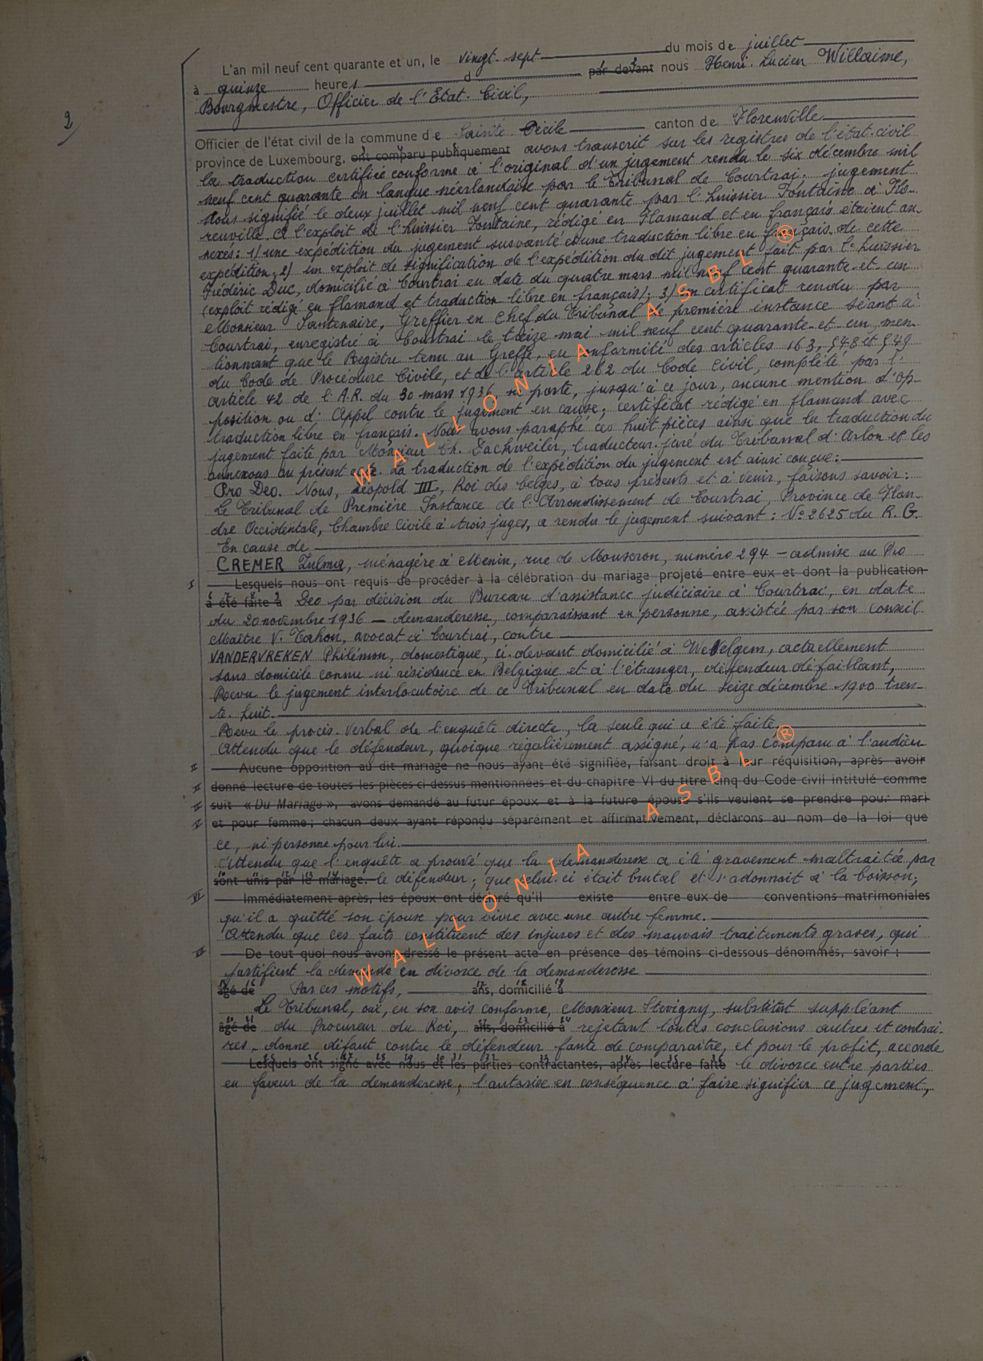 2
L'an mil neuf cent quarante et un, le vingt-sept du mois de juillet
à quinze heures d par devant nous Henri-Lucien Willaime,
Bourgmestre, Officier de l'Etat-Civil,
Officier de l'état civil de la commune de Sainte Cécile canton de Florenville
province de Luxembourg, ont comparu publiquement avons transcrit sur les registres de l'état-civil
la traduction certifiée conforme à l'original d'un jugement rendu le six décembre mil
neuf cent quarante en langue néerlandaise par le Tribunal de Courtrai; jugement
nous signifié le deux juillet mil neuf cent quarante par l'huissier Fontaine à Flo-
renville. A l'exploit de l'huissier Fontaine, rédigé en flamand et en français étaient an-
nexés: 1) une expédition du jugement susvanté et une traduction libre en français de cette
expédition; 2) un exploit de signification de l'expédition du dit jugement fait par l'huissier
Frédéric Duc, domicilié à Courtrai en date du quatre mars mil neuf cent quarante et un
(exploit rédigé en flamand et traduction libre en français); 3) un certificat rendu par
Monsieur Santenaire, Greffier en Chef du Tribunal de première instance séant à
Courtrai, enregistré à Courtrai le treize mai mil neuf cent quarante et un, men-
tionnant que le Registre tenu au Greffe, en conformité des articles 163, 548 et 549
du Code de Procédure Civile, et de l'article 262 du Code Civil, complété par l'
article 42 de l'A.R. du 30 mars 1936, ne porte, jusqu'à ce jour, aucune mention d'op-
position ou d'Appel contre le jugement en cause, certificat rédigé en flamand avec
traduction libre en français. Nous avons paraphé ces huit pièces ainsi que la traduction du
jugement faite par Monsieur Ch. Dachweiler, traducteur-juré du Tribunal d'Arlon et les
annexons au présent acte. La traduction de l'expédition du jugement est ainsi conçue:
Pro Deo. Nous, Léopold III, Roi des belges, à tous présents et à venir, faisons savoir:
Le Tribunal de Première Instance de l'Arrondissement de Courtrai, Province de Flan-
dre Occidentale, Chambre Civile à trois juges, a rendu le jugement suivant: N° 2625 du R.G.
En cause de
CREMER Zulma, ménagère à Menin, rue de Mouscron, numéro 294 - admise au Pro
I Lesquels nous ont requis de procéder à la célébration du mariage projeté entre eux et dont la publication
a été faite à Deo par décision du Bureau d'assistance judiciaire à Courtrai, en date
du 20 novembre 1936 - demanderesse, comparaissant en personne, assistée par son conseil
Maître V. Tahon, avocat à Courtrai, contre
VANDERVREKEN Philémon, domestique, ci-devant domicilié à Wevelgem, actuellement
sans domicile connu ni résidence en Belgique et à l'étranger, défendeur défaillant,
Revu le jugement interlocutoire de ce Tribunal en date du seize décembre 1900 tren-
te-huit.
Revu le procès-verbal de l'enquête directe, la seule qui a été faite.
Attendu que le défendeur, quoique régulièrement assigné, n'a pas comparu à l'audien
Aucune opposition au dit mariage ne nous ayant été signifiée, faisant droit à leur réquisition, après avoir
donné lecture de toutes les pièces ci-dessus mentionnées et du chapitre VI du titre cinq du Code civil intitulé comme
suit « Du Mariage », avons demandé au futur époux et à la future épouse s'ils veulent se prendre pour mari
et pour femme; chacun deux ayant répondu séparément et affirmativement, déclarons au nom de la loi que
ce, ni personne pour lui.
Attendu que l'enquête a prouvé que la demanderesse a été gravement maltraitée par
sont unis par le mariage. le défendeur; que celui-ci était brutal et s'adonnait à la boisson;
Immédiatement après, les époux ont déclaré qu'il existe entre eux de conventions matrimoniales
qu'il a quitté son épouse pour vivre avec une autre femme.
Attendu que ces faits constituent des injures et des mauvais traitements graves, qui
De tout quoi nous avons dressé le présent acte en présence des témoins ci-dessous dénommés, savoir :
justifient la demande en divorce de la demanderesse
âgé de Par ces motifs, ans, domicilié à
Le Tribunal, ouï, en son avis conforme, Monsieur Stevigny, substitut suppléant
âgé de du Procureur du Roi, ans, domicilié à rejetant toutes conclusions autres et contrai-
res - donne défaut contre le défendeur faute de comparaître, et pour le profit, accorde
Lesquels ont signé avec nous et les parties contractantes, après lecture faite le divorce entre parties
en faveur de la demanderesse, l'autorise en conséquence à faire signifier ce jugement,
WALLONIA ASBL ®
WALLONIA ASBL ®